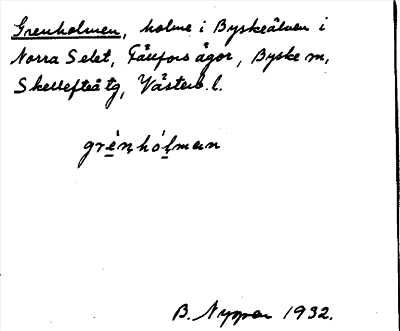 Grenholmen, holme i Byskeälven i
Norra Selet, Fällfors ägor, Byske sn,
Skellefteå tg, Västerb. l.
grènhólmen
B. Nyman 1932.